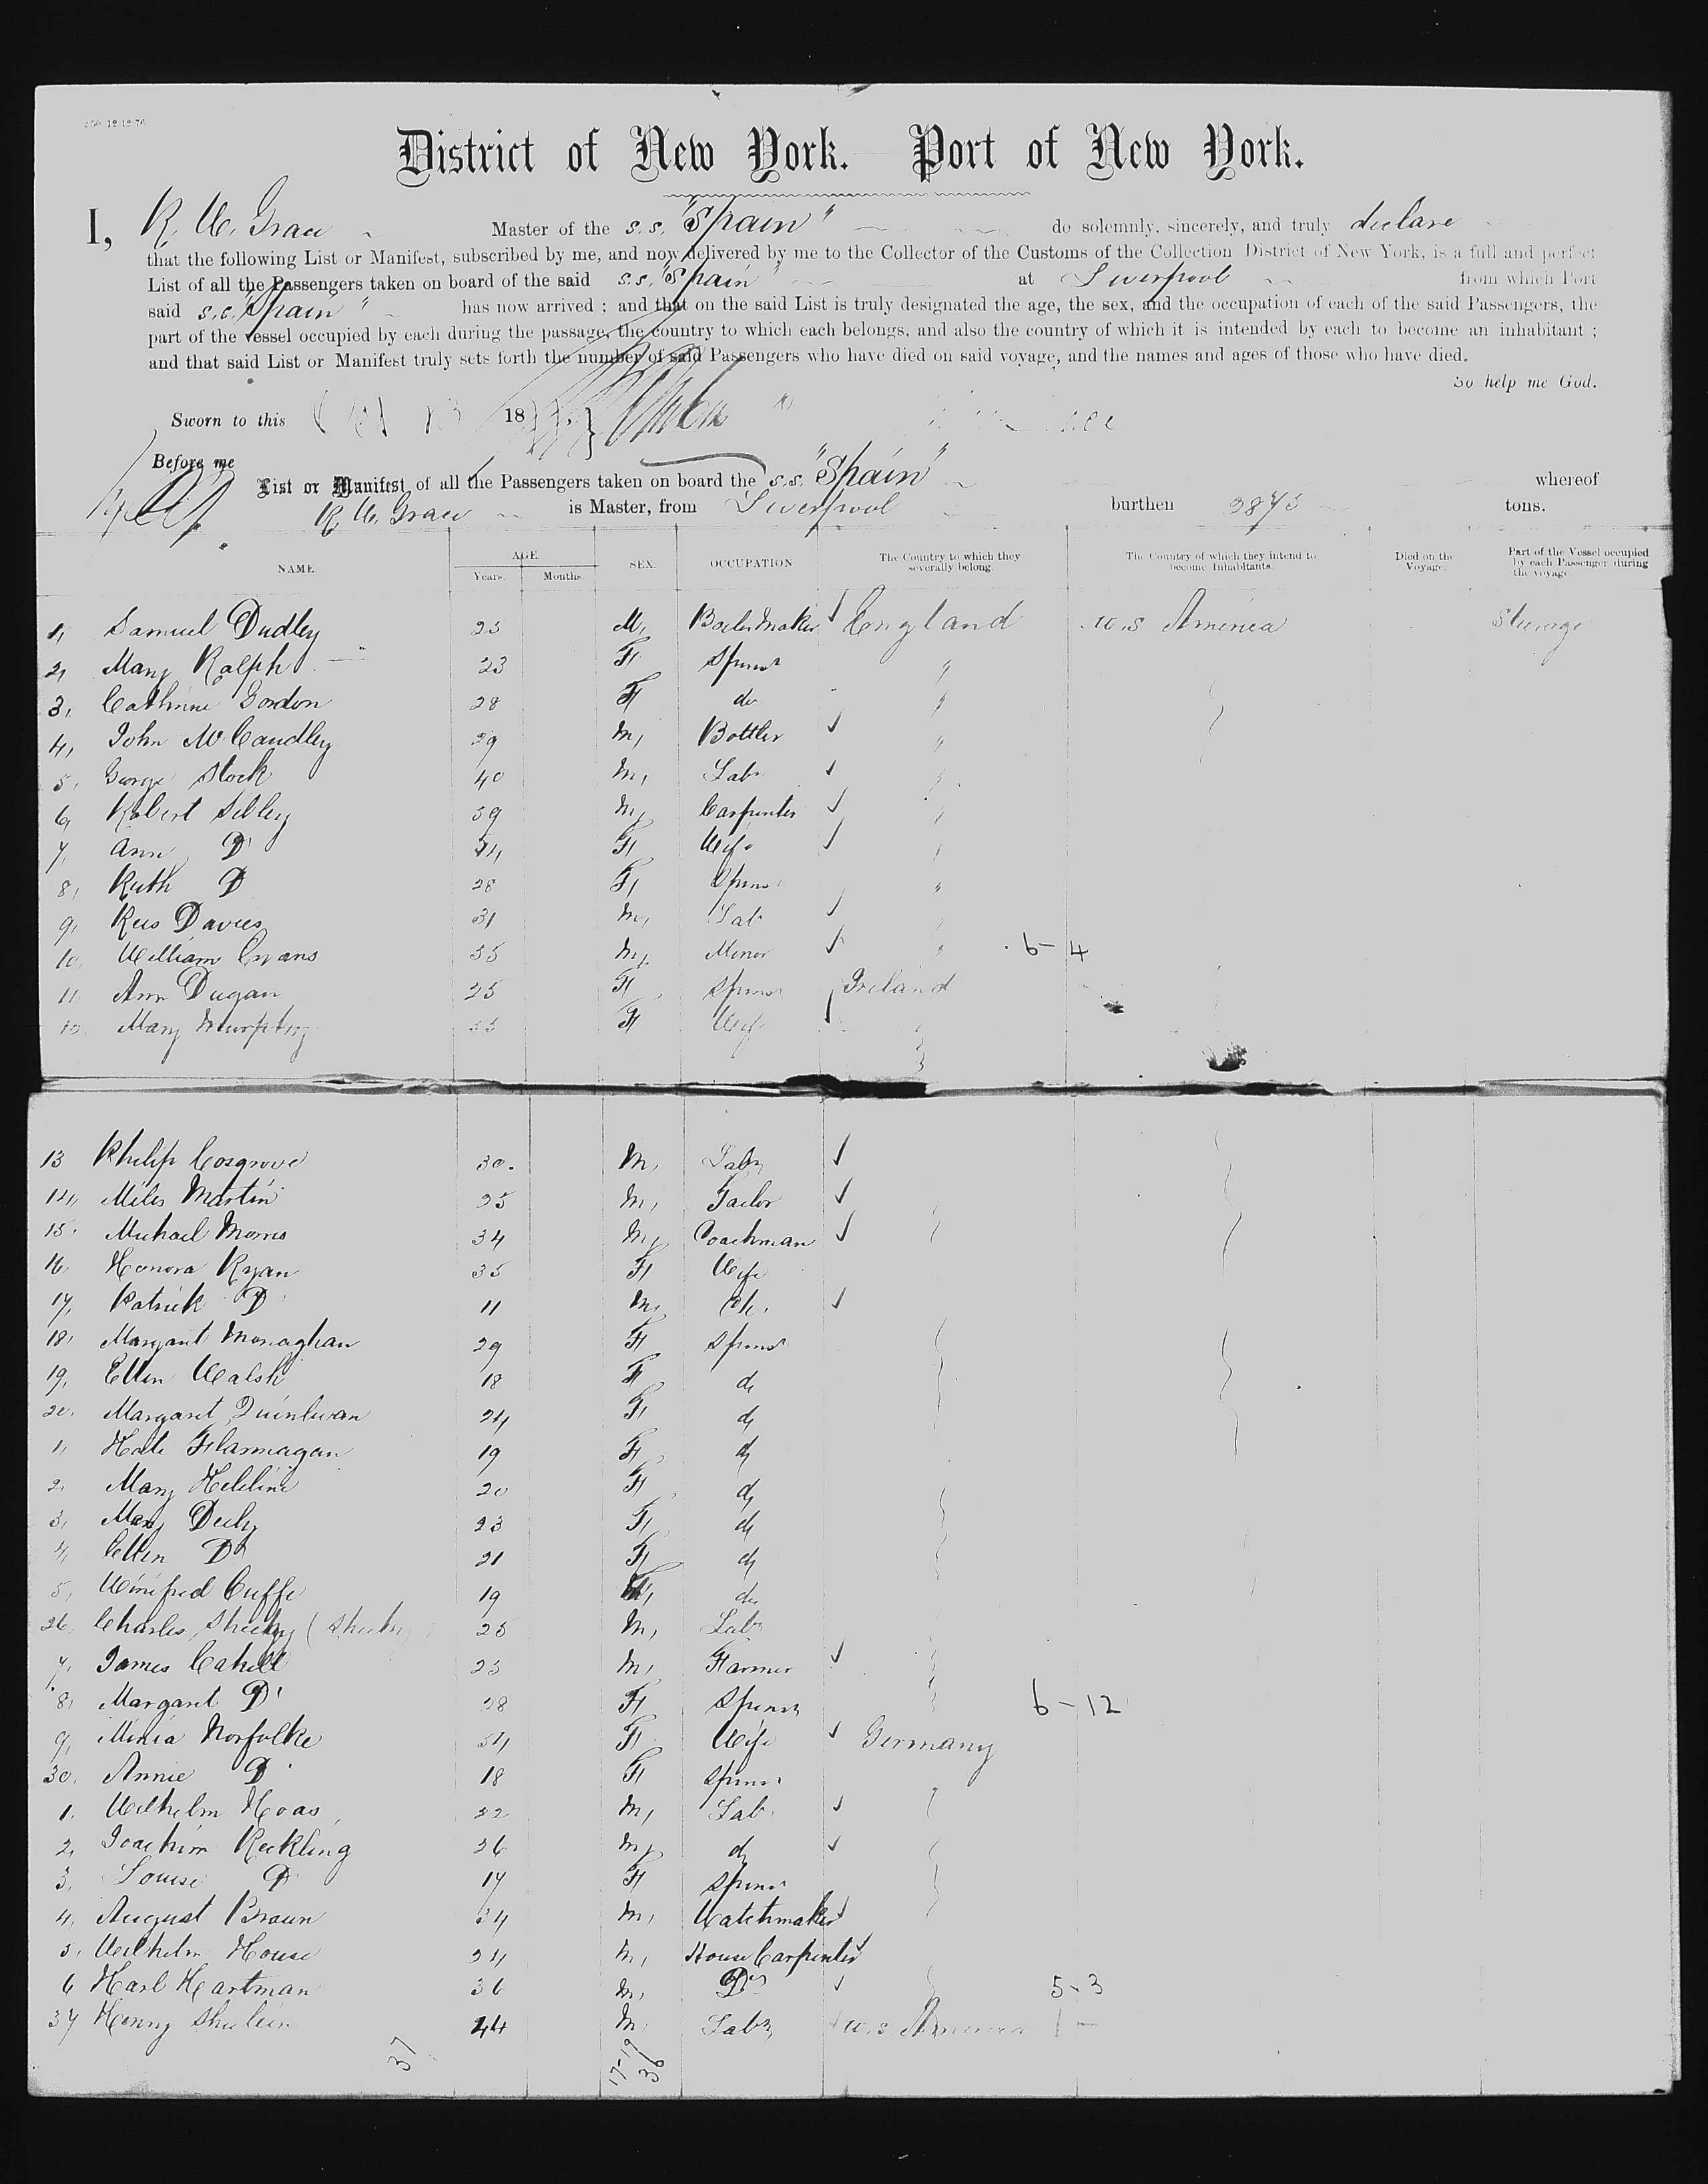 250 12.12.76
District of New York. Port of New York.
I, R. W. Grace Master of the s.s. "Spain" do solemnly, sincerely, and truly declare
that the following List or Manifest, subscribed by me, and now delivered by me to the Collector of the Customs of the Collection District of New York, is a full and perfect
List of all the Passengers taken on board of the said s.s. "Spain" at Liverpool from which Port
said s.s. "Spain" has now arrived ; and that on the said List is truly designated the age, the sex, and the occupation of each of the said Passengers, the
part of the vessel occupied by each during the passage, the country to which each belongs, and also the country of which it is intended by each to become an inhabitant ;
and that said List or Manifest truly sets forth the number of said Passengers who have died on said voyage, and the names and ages of those who have died.
So help me God.
Sworn to this 18
Before me
List or Manifest of all the Passengers taken on board the s.s. "Spain" whereof
R. W. Grace is Master, from Liverpool burthen tons.
NAME. AGE. Years. Months. SEX. OCCUPATION The Country to which they severally belong. The Country of which they intend to become Inhabitants. Died on the Voyage. Part of the Vessel occupied by each Passenger during the voyage
1, Samuel Dudley M, Boilermaker England U.S America Steerage
2, Mary Ralph 23 F, Spinsr "
3, Cathrine Gordon 28 F do "
4, John McCaudley M, Bottler "
5, George Stock 40 M, Labr "
6, Robert Sibley 59 M, Carpenter "
7, Ann Do F, Wife "
8, Ruth Do 28 F, Spinsr "
9, Rees Davies 31 M, Lab
10, William Evans M, Miner " 6-4
11 Ann Dugan 25 F, Spinsr Ireland
12, Mary Murphy F, Wife
13 Philip Cosgrove 30. M, Labr
14, Miles Martin 25 M, Tailor
15, Michael Morris 34 M, Coachman
16, Honora Ryan 35 F, Wife
17, Patrick Do 11 M, Ch.
18, Margaret Monaghan 29 F, Spinsr
19, Ellen Walsh 18 F, do
20, Margaret Quinlivan 24 F, do
1, Kate Flannagan 19 F, do
2, Mary 20 F, do
3, Mary 23 F, do
4, Ellen Do 21 F, do
5, Winifred Cuffe 19 F, do
26, Charles Sheehy 25 M, Labr
7, James Cahill M, Farmer
8, Margaret Do F, Spinsr 6-12
9, Minia Norfolke F, Wife Germany
30, Annie Do 18 F, Spinsr
1, Wilhelm Haas 22 M, Lab
2, Joachim Reckling M, do
3, Louise Do 17 F, Spinsr
4, August Braun M, Watchmaker
5, Wilhelm House 24 M, House Carpenter
6 Karl Hartman 36 M, Do 5-3
37 Henry 44 M Labr U.S. America 1-
37 17-19
36